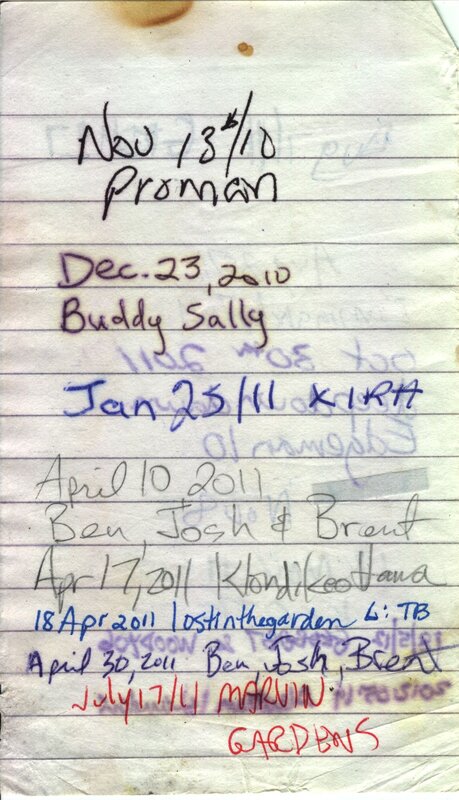 Nov 13th/10
Proman
Dec. 23, 2010
Buddy Sally
Jan 25/11 KIRA
April 10 2011
Ben, Josh & Brent
Apr 17, 2011 Klondikeottawa
18 Apr 2011 lostinthegarden L: TB
April 30, 2011 Ben, Josh, Brent
July 17/11 MARVIN
GARDENS